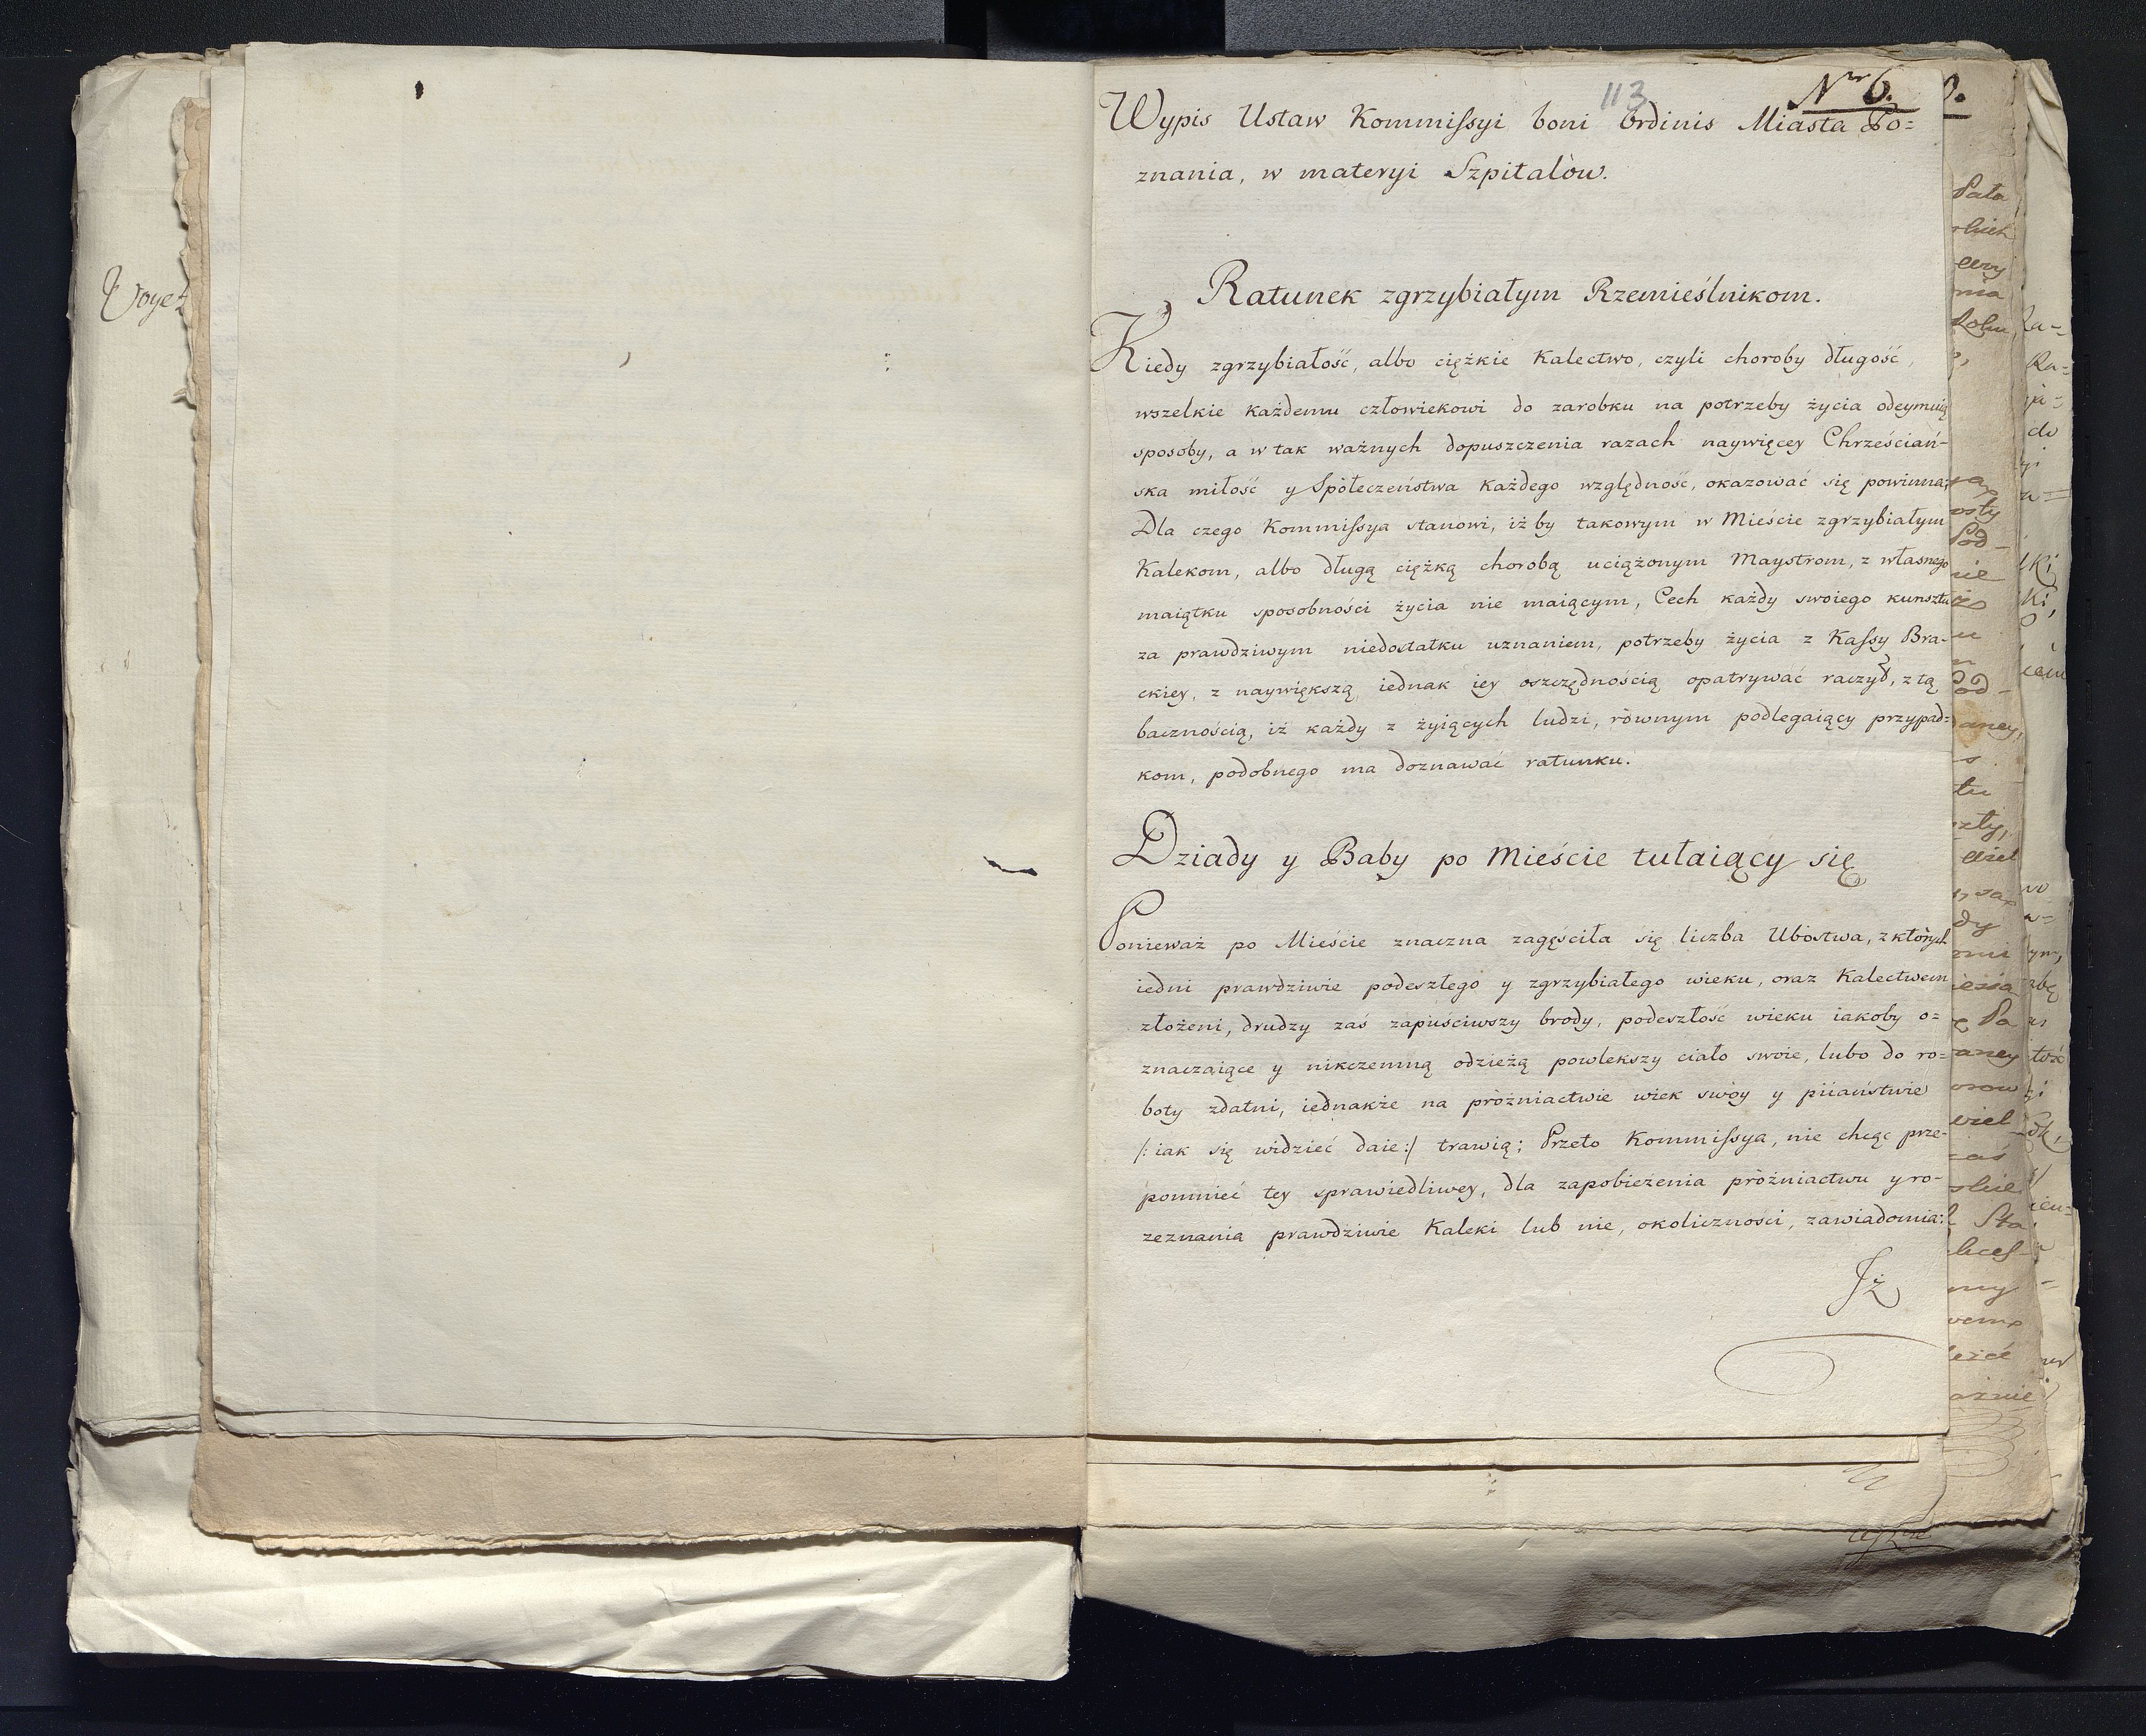 113
Nro 6.
Wypis Ustaw Kommissyi boni Ordinis Miasta Po=
znania, w materyi Szpitalòw.
Ratunek zgrzybiałym Rzemieślnikom.
Kiedy zgrzybiałość, albo ciężkie Kalectwo, czyli choroby długość,
wszelkie każdemu człowiekowi do zarobku na potrzeby życia odeymuią
sposoby, a w tak ważnych dopuszczenia razach naywięcey Chrześciań-
ska miłość y Społeczeństwa każdego względność, okazować się powinna;
Dla czego Kommissya stanowi, iż by takowym w Mieście zgrzybiałym
Kalekom, albo długą ciężką chorobą uciążonym Maystrom, z własnego
maiątku sposobności życia nie maiącym, Cech każdy swoiego kunsztu
za prawdziwym niedostatku uznaniem, potrzeby życia z Kassy Bra-
ckiey, z naywiększą iednak iey oszczędnością opatrywać raczył, z tą
bacznością, iż każdy z żyiących ludzi, ròwnym podlegaiący przypad=
kom, podobnego ma doznawać ratunku.
Dziady y Baby po Mieście tułaiący się
Ponieważ po Mieście znaczna zagęściła się liczba Ubòstwa, z ktòrych
iedni prawdziwie podeszłego y zgrzybiałego wieku, oraz Kalectwem
złożeni, drudzy zaś zapuściwszy brody, podeszłość wieku iakoby o=
znaczaiące y nikczemną odzieżą powlekszy ciało swoie, lubo do ro=
boty zdatni, iednakże na pròżniactwie wiek swòy y piiaństwie
/: iak się widzieć daie :/ trawią; Przeto Kommissya, nie chcąc prze-
pomnieć tey sprawiedliwey, dla zapobieżenia pròżniactwu y ro-
zeznania prawdziwie Kaleki lub nie, okoliczności, zawiadomia:
Jż